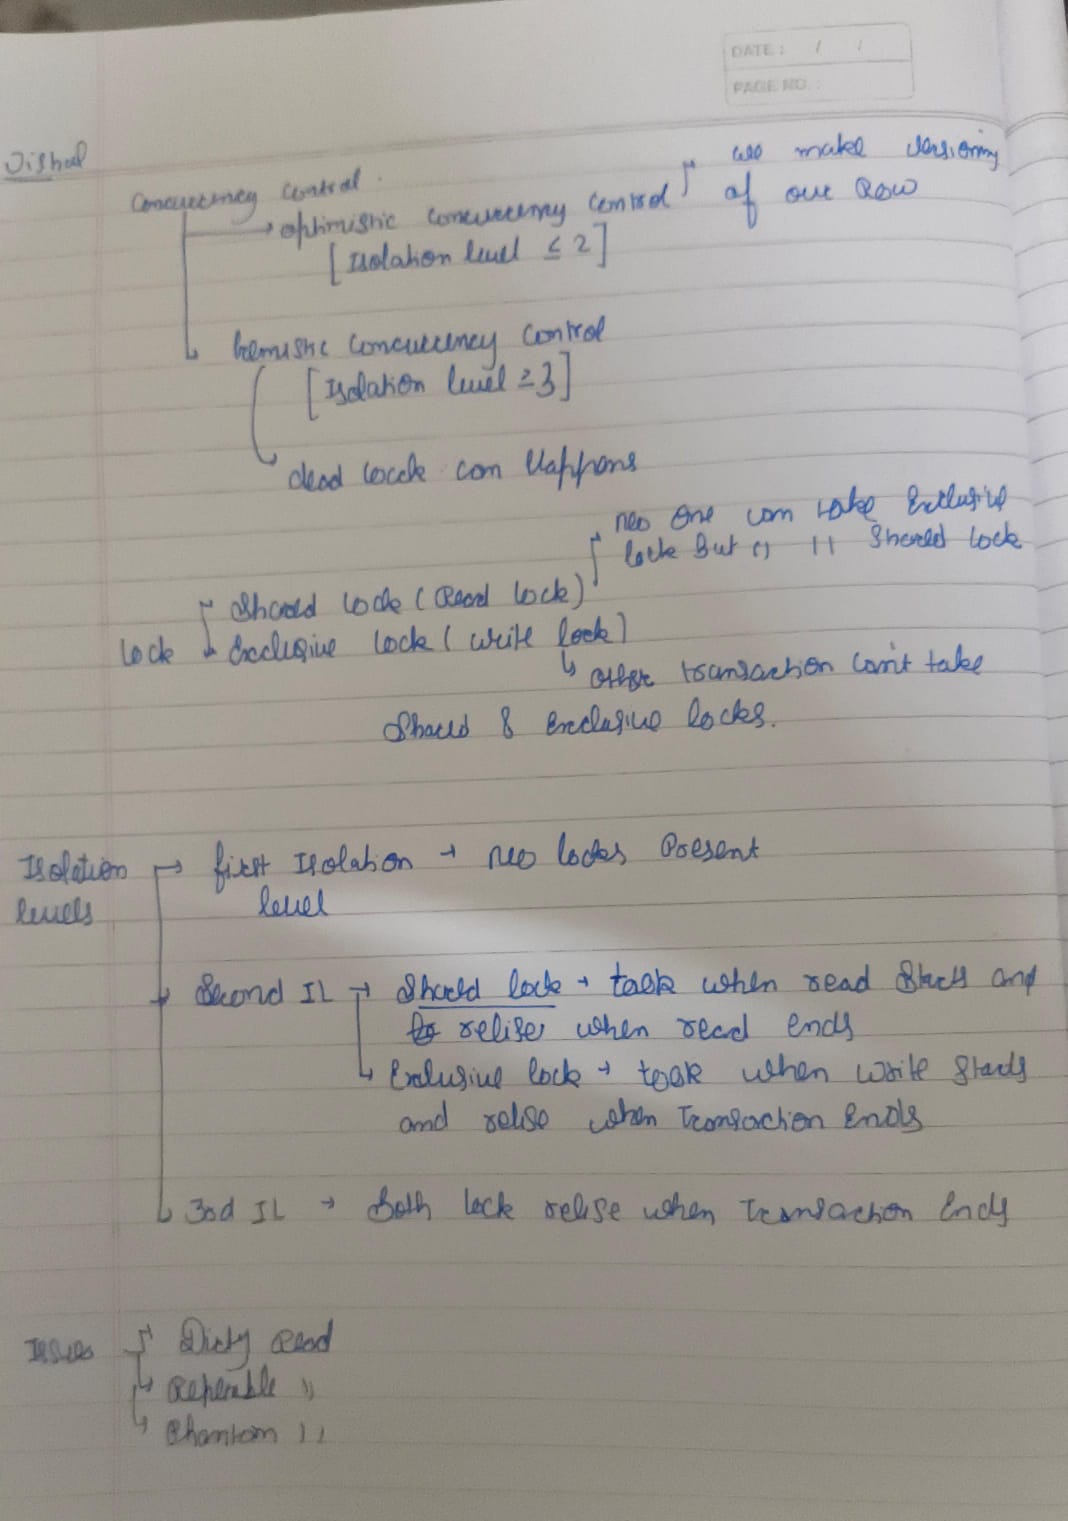 DATE: / /
PAGE NO.:
Vishal
Concurrency Control.
→ optimistic concurrency control → we make versioning
of our Row
[Isolation level ≤ 2]
Concurrency Control
[Isolation level ≥ 3]
dead lock can Happens
no one can take Exclusive
lock But " 11 Shared lock
Shared lock (Read lock)
Lock → Exclusive lock (Write lock)
other transaction can't take
Shared & Exclusive locks.
Isolation → first Isolation → no locks Present
levels level
Second IL → Shared lock → took when read Starts and
relise when read ends
Exclusive lock → took when write starts
and relise when Transaction Ends
3rd IL → Both lock relise when Transaction Ends
Issues → Dirty Read
Repeatable "
Phantom 11